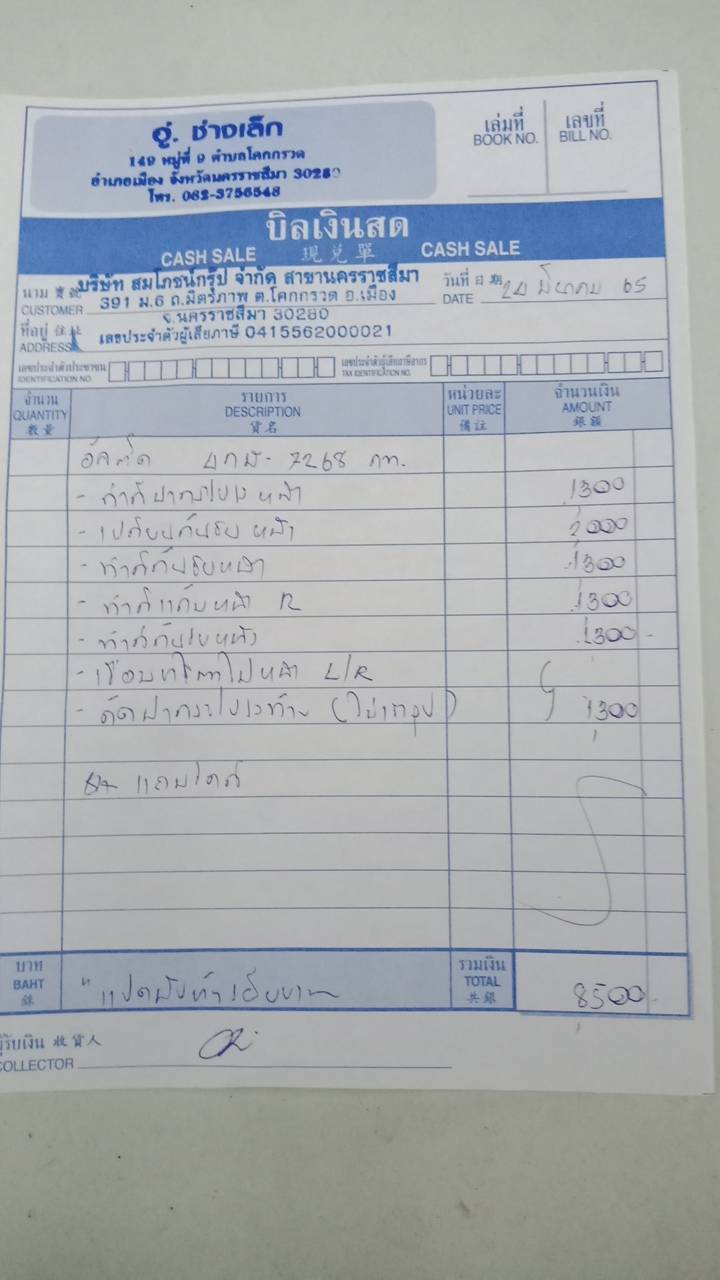 อู่. ช่างเล็ก
149 หมู่ที่ 9 ตำบลโคกกรวด
อำเภอเมือง จังหวัดนครราชสีมา 30280
โทร. 062-3756548
เล่มที่
BOOK NO.
เลขที่
BILL NO.
บิลเงินสด
CASH SALE 現兑單 CASH SALE
นาม 寶號 บริษัท สมโภชน์กรุ๊ป จำกัด สาขานครราชสีมา
CUSTOMER 391 ม.6 ถ.มิตรภาพ ต.โคกกรวด อ.เมือง
วันที่ 日期
DATE 24 มีนาคม 65
จ.นครราชสีมา 30280
ที่อยู่ 住址
ADDRESS เลขประจำตัวผู้เสียภาษี 0415562000021
เลขประจำตัวประชาชน
IDENTIFICATION NO.
เลขประจำตัวผู้เสียภาษีอากร
TAX IDENTIFICATION NO.
จำนวน
QUANTITY
數量
รายการ
DESCRIPTION
貨名
หน่วยละ
UNIT PRICE
備註
จำนวนเงิน
AMOUNT
銀額
7268 กท.
- หน้า 1300
- เปลี่ยนกันชน หน้า 2000
- ทำสีกันชนหน้า 1300
- ทำสีแก้มหน้า R 1300
- ทำสี 1300 -
- หน้า L/R
- 1300
บาท
BAHT
銖
" แปดพันห้าร้อยบาท
รวมเงิน
TOTAL
共銀
8500 -
ผู้รับเงิน 收貨人
COLLECTOR